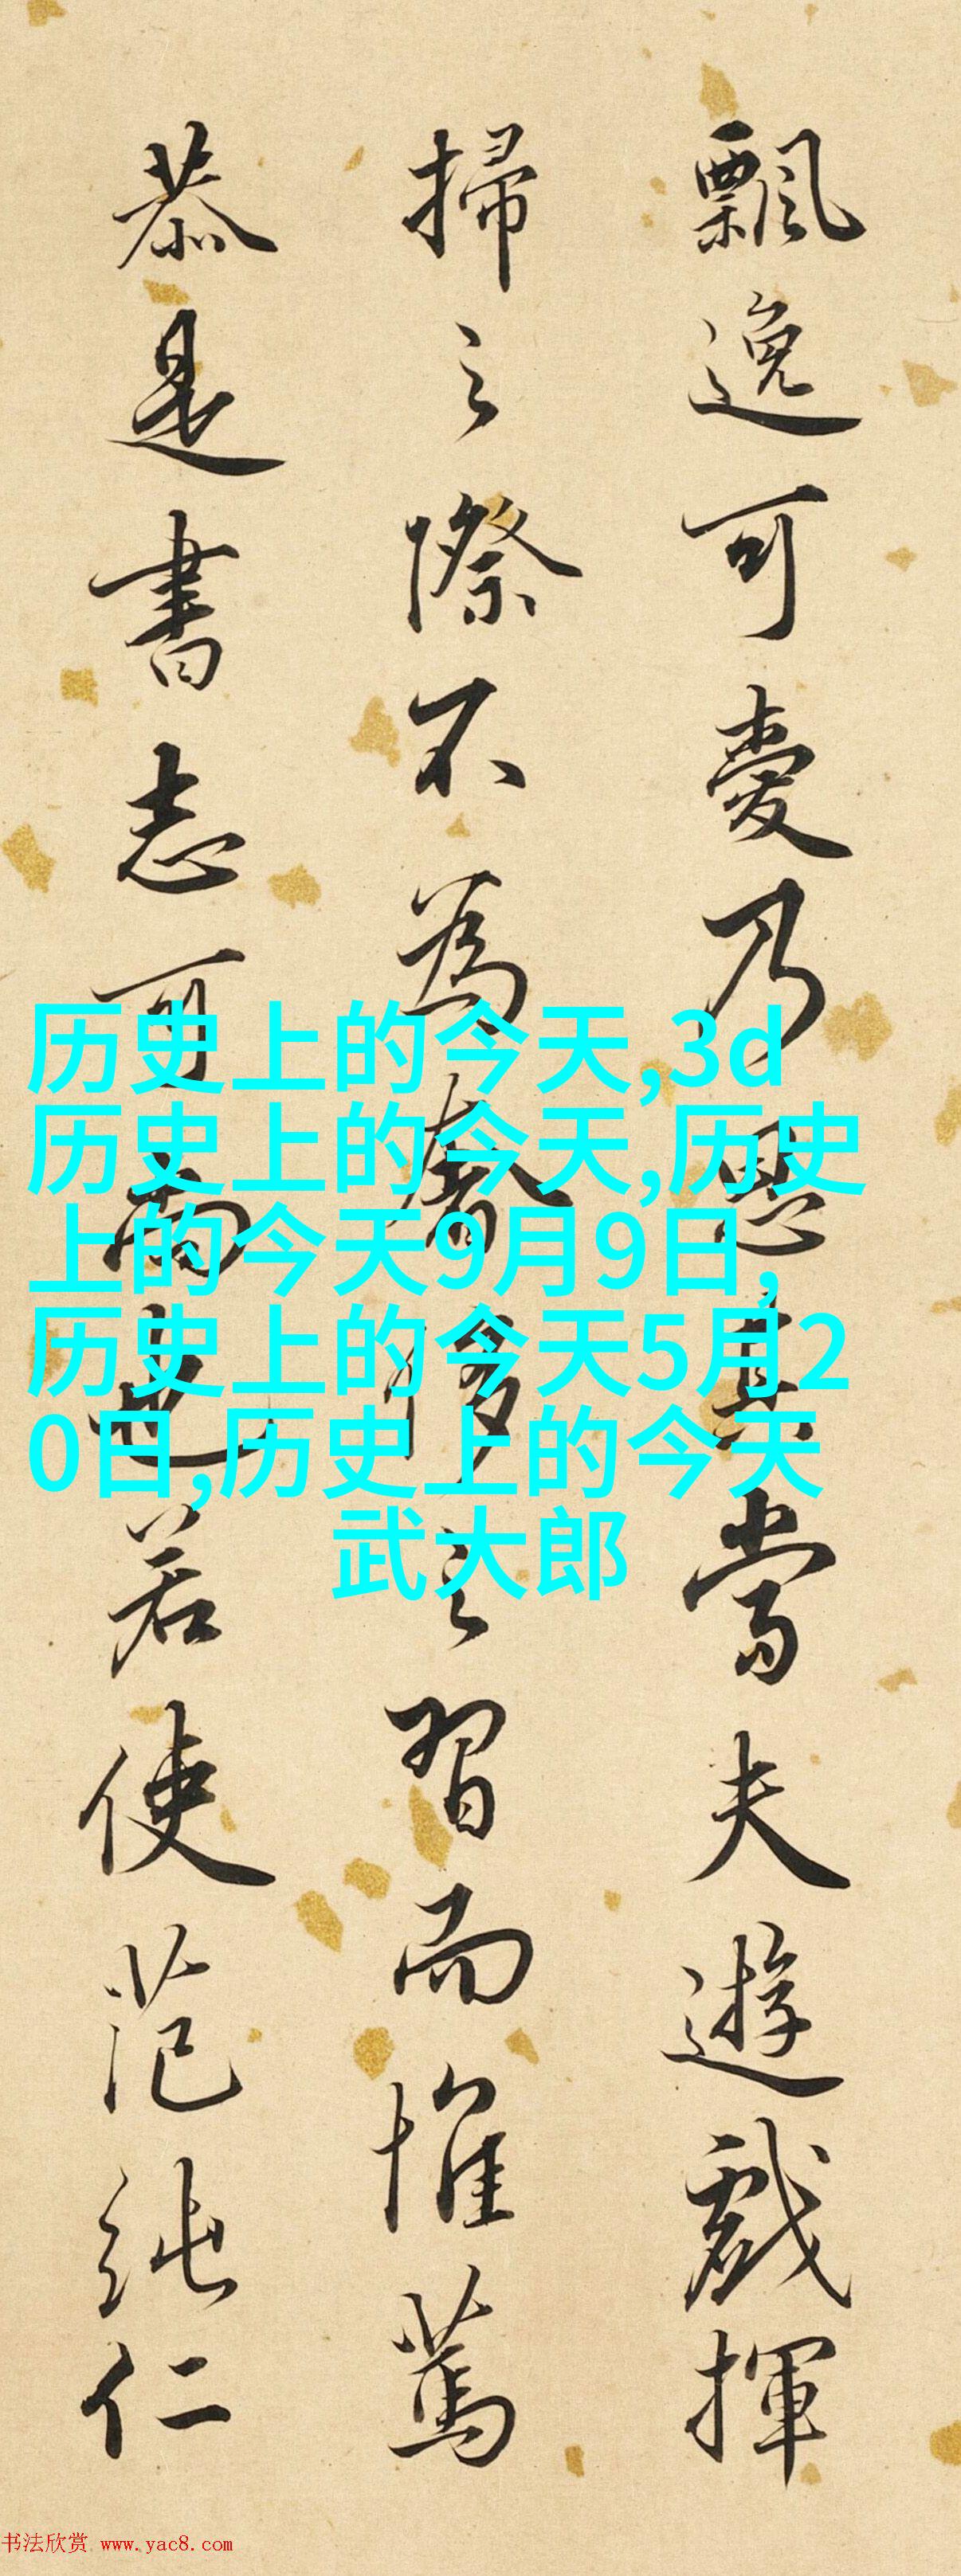 飄逸可愛乃思其當夫遊戲揮
掃之際不為奢侈之習而惟篤
恭是書志可尚也若使范純仁
历史上的今天,3d
历史上的今天,历史
上的今天9月9日,
历史上的今天5月2
0日,历史上的今天
武大郎
书法欣赏 www.yac8.com